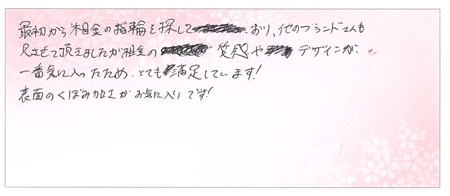 最初から木目金の指輪を探しており、他のブランドさんも
見させて頂きましたが木目金の質感やデザインが
一番気に入ったため、とても満足しています!
表面のくぼみ加工がお気に入りです!